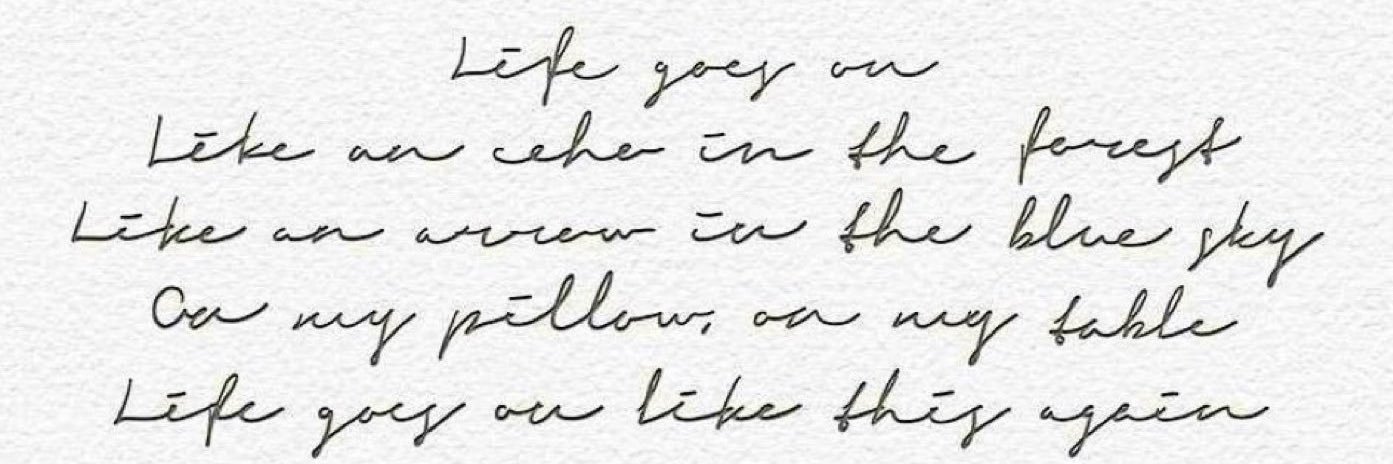 Life goes on
Like an echo in the forest
Like an arrow in the blue sky
On my pillow, on my table
Life goes on like this again